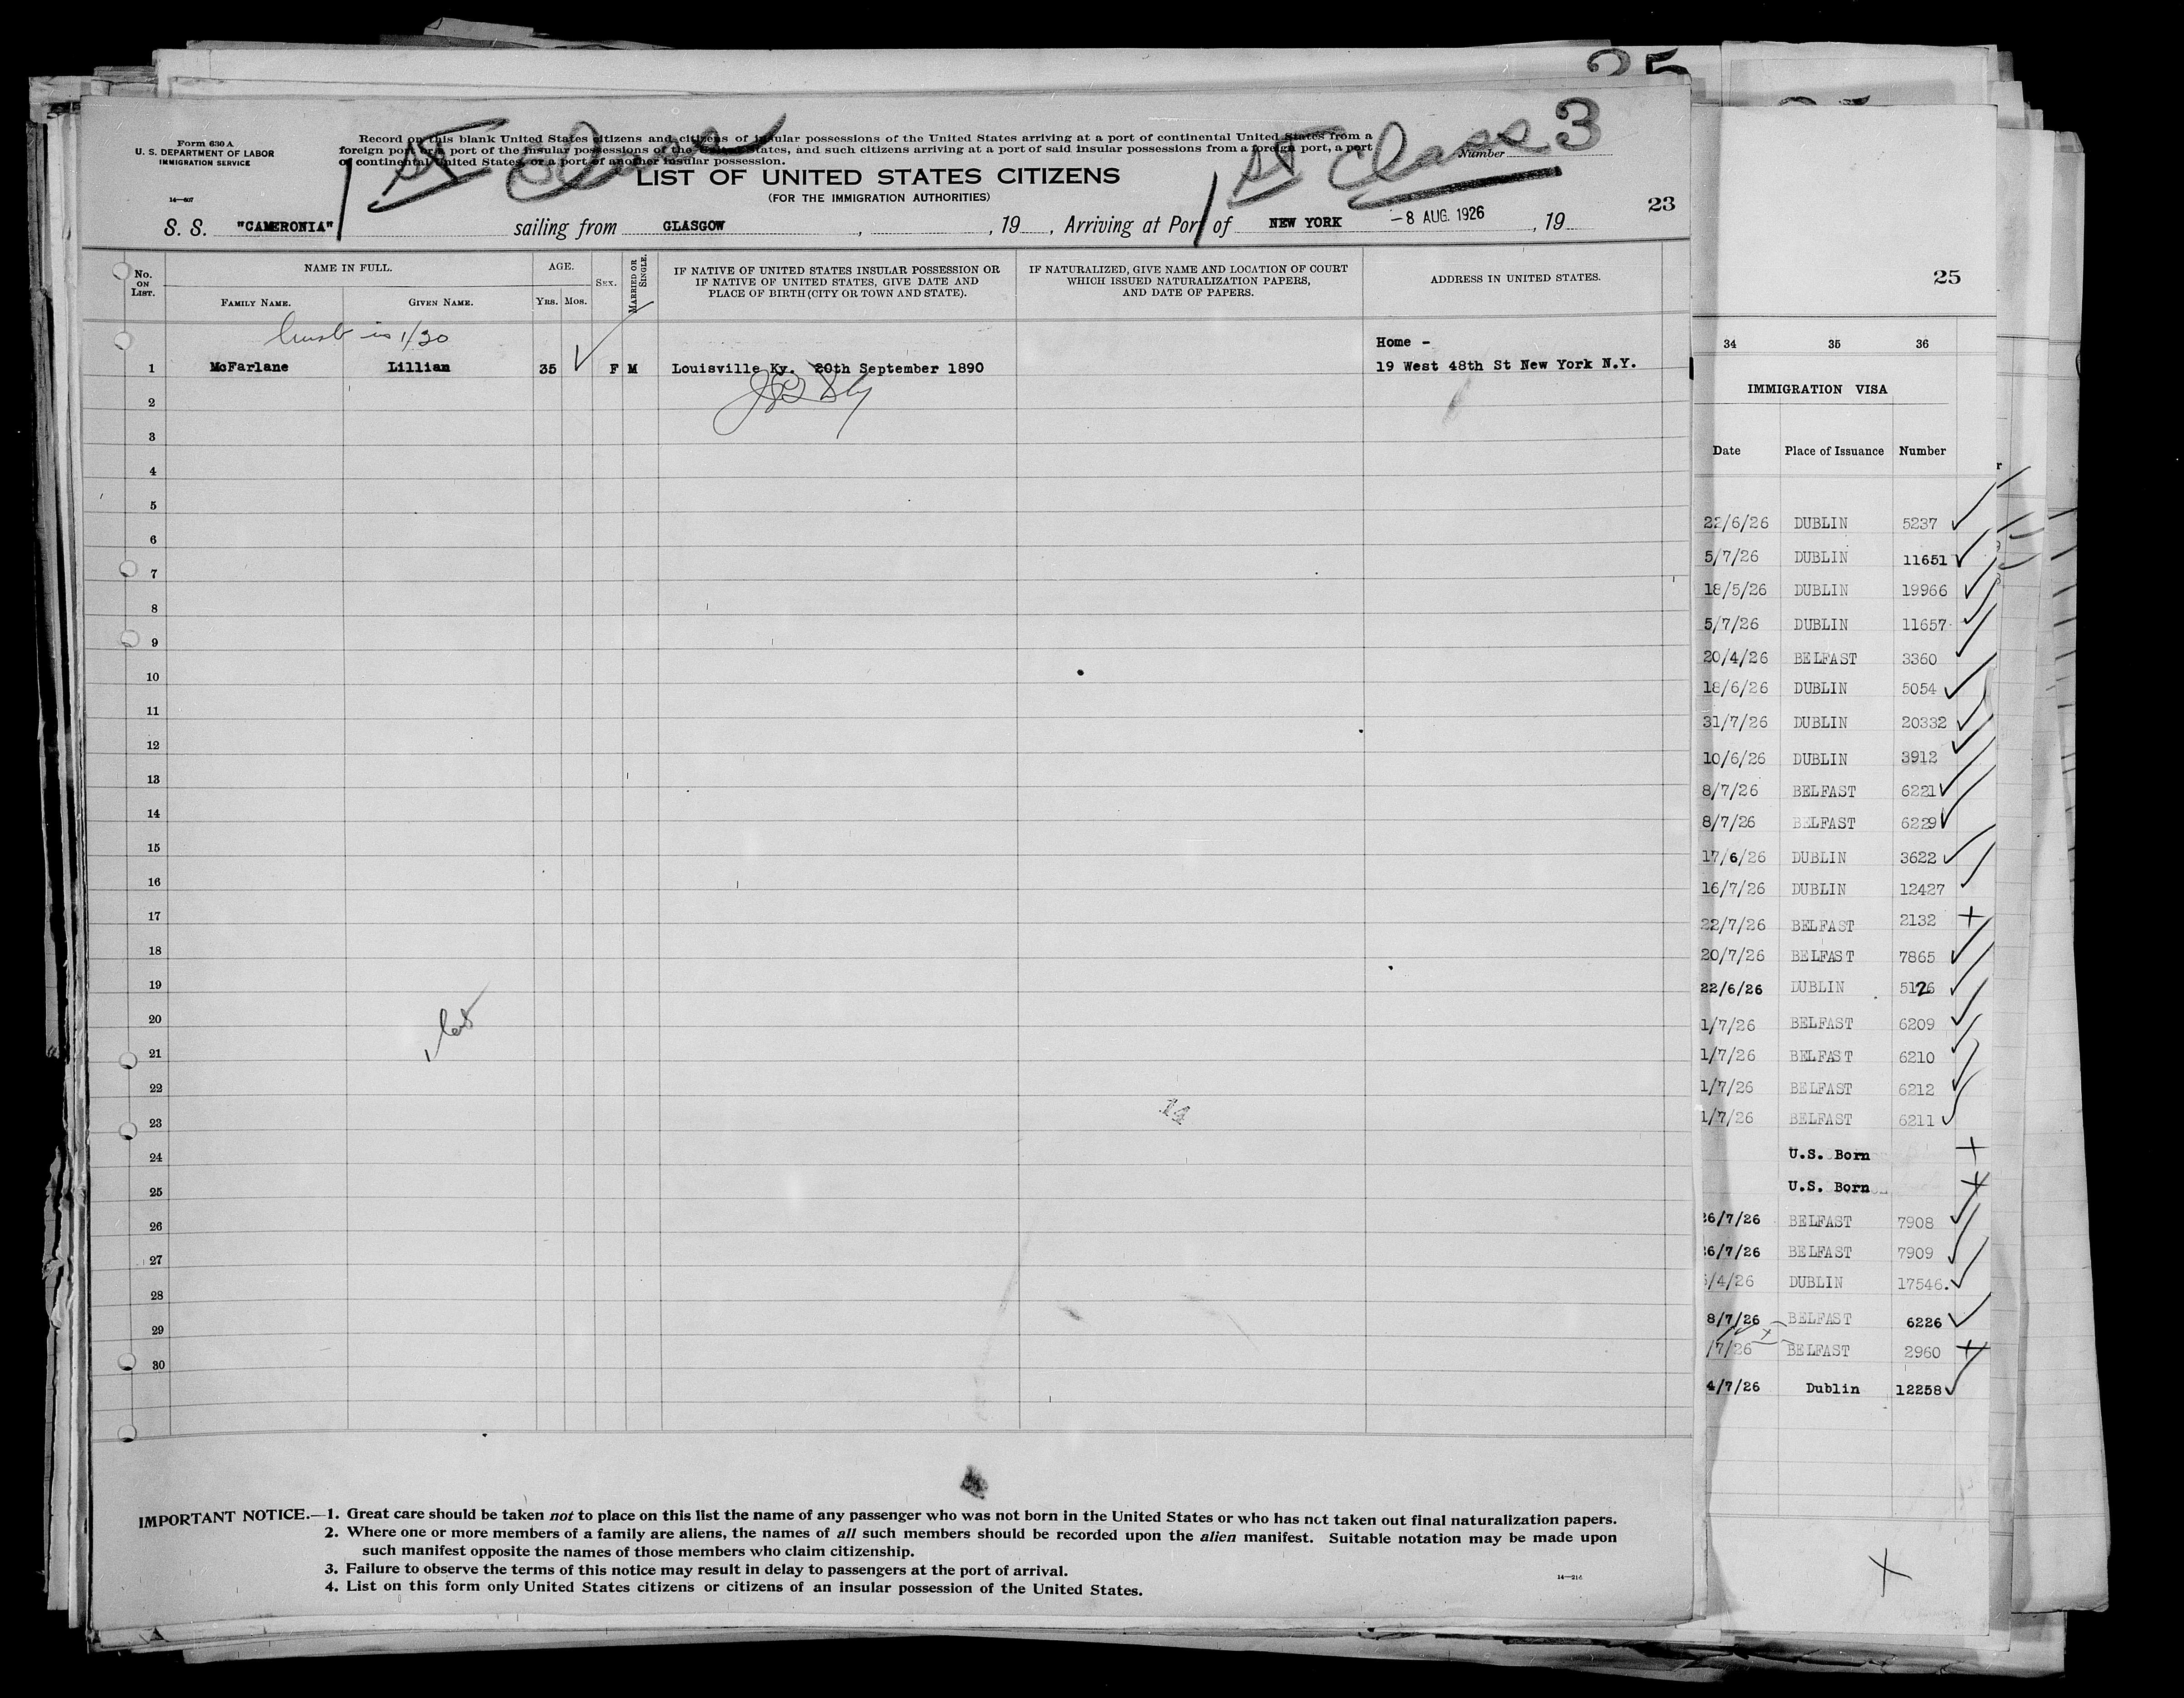 25
Form 630 A
U. S. DEPARTMENT OF LABOR
IMMIGRATION SERVICE
14—607
Record on this blank United States citizens and citizens of insular possessions of the United States arriving at a port of continental United States from a
foreign port or a port of the insular possessions of the United States, and such citizens arriving at a port of said insular possessions from a foreign port, a port
of continental United States, or a port of another insular possession.
1st Class
1st Class
Number 3
LIST OF UNITED STATES CITIZENS
(FOR THE IMMIGRATION AUTHORITIES)
23
S. S. "CAMERONIA" sailing from GLASGOW , , 19 , Arriving at Port of NEW YORK -8 AUG. 1926 , 19
No. ON LIST.
NAME IN FULL.
FAMILY NAME.
GIVEN NAME.
AGE.
YRS.
MOS.
SEX.
MARRIED OR SINGLE.
IF NATIVE OF UNITED STATES INSULAR POSSESSION OR
IF NATIVE OF UNITED STATES, GIVE DATE AND
PLACE OF BIRTH (CITY OR TOWN AND STATE).
IF NATURALIZED, GIVE NAME AND LOCATION OF COURT
WHICH ISSUED NATURALIZATION PAPERS,
AND DATE OF PAPERS.
ADDRESS IN UNITED STATES.
is 1/30
Home -
1 McFarlane Lillian 35 F M Louisville Ky. 20th September 1890 19 West 48th St New York N.Y.
2
3
4
5
6
7
8
9
10
11
12
13
14
15
16
17
18
19
20
21
22
23
24
25
26
27
28
29
30
14
IMPORTANT NOTICE.—1. Great care should be taken not to place on this list the name of any passenger who was not born in the United States or who has not taken out final naturalization papers.
2. Where one or more members of a family are aliens, the names of all such members should be recorded upon the alien manifest. Suitable notation may be made upon
such manifest opposite the names of those members who claim citizenship.
3. Failure to observe the terms of this notice may result in delay to passengers at the port of arrival.
4. List on this form only United States citizens or citizens of an insular possession of the United States.
25
34 35 36
IMMIGRATION VISA
Date Place of Issuance Number
22/6/26 DUBLIN 5237
5/7/26 DUBLIN 11651
18/5/26 DUBLIN 19966
5/7/26 DUBLIN 11657
20/4/26 BELFAST 3360
18/6/26 DUBLIN 5054
31/7/26 DUBLIN 20332
10/6/26 DUBLIN 3912
8/7/26 BELFAST 6221
8/7/26 BELFAST 6229
17/6/26 DUBLIN 3622
16/7/26 DUBLIN 12427
22/7/26 BELFAST 2132
20/7/26 BELFAST 7865
22/6/26 DUBLIN 5126
1/7/26 BELFAST 6209
1/7/26 BELFAST 6210
1/7/26 BELFAST 6212
1/7/26 BELFAST 6211
U.S. Born
U.S. Born
26/7/26 BELFAST 7908
26/7/26 BELFAST 7909
/4/26 DUBLIN 17546
8/7/26 BELFAST 6226
/7/26 BELFAST 2960
4/7/26 Dublin 12258